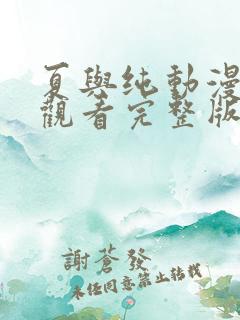 夏與纯動漫
觀看完整版
謝蒼發
未經同意禁止轉載